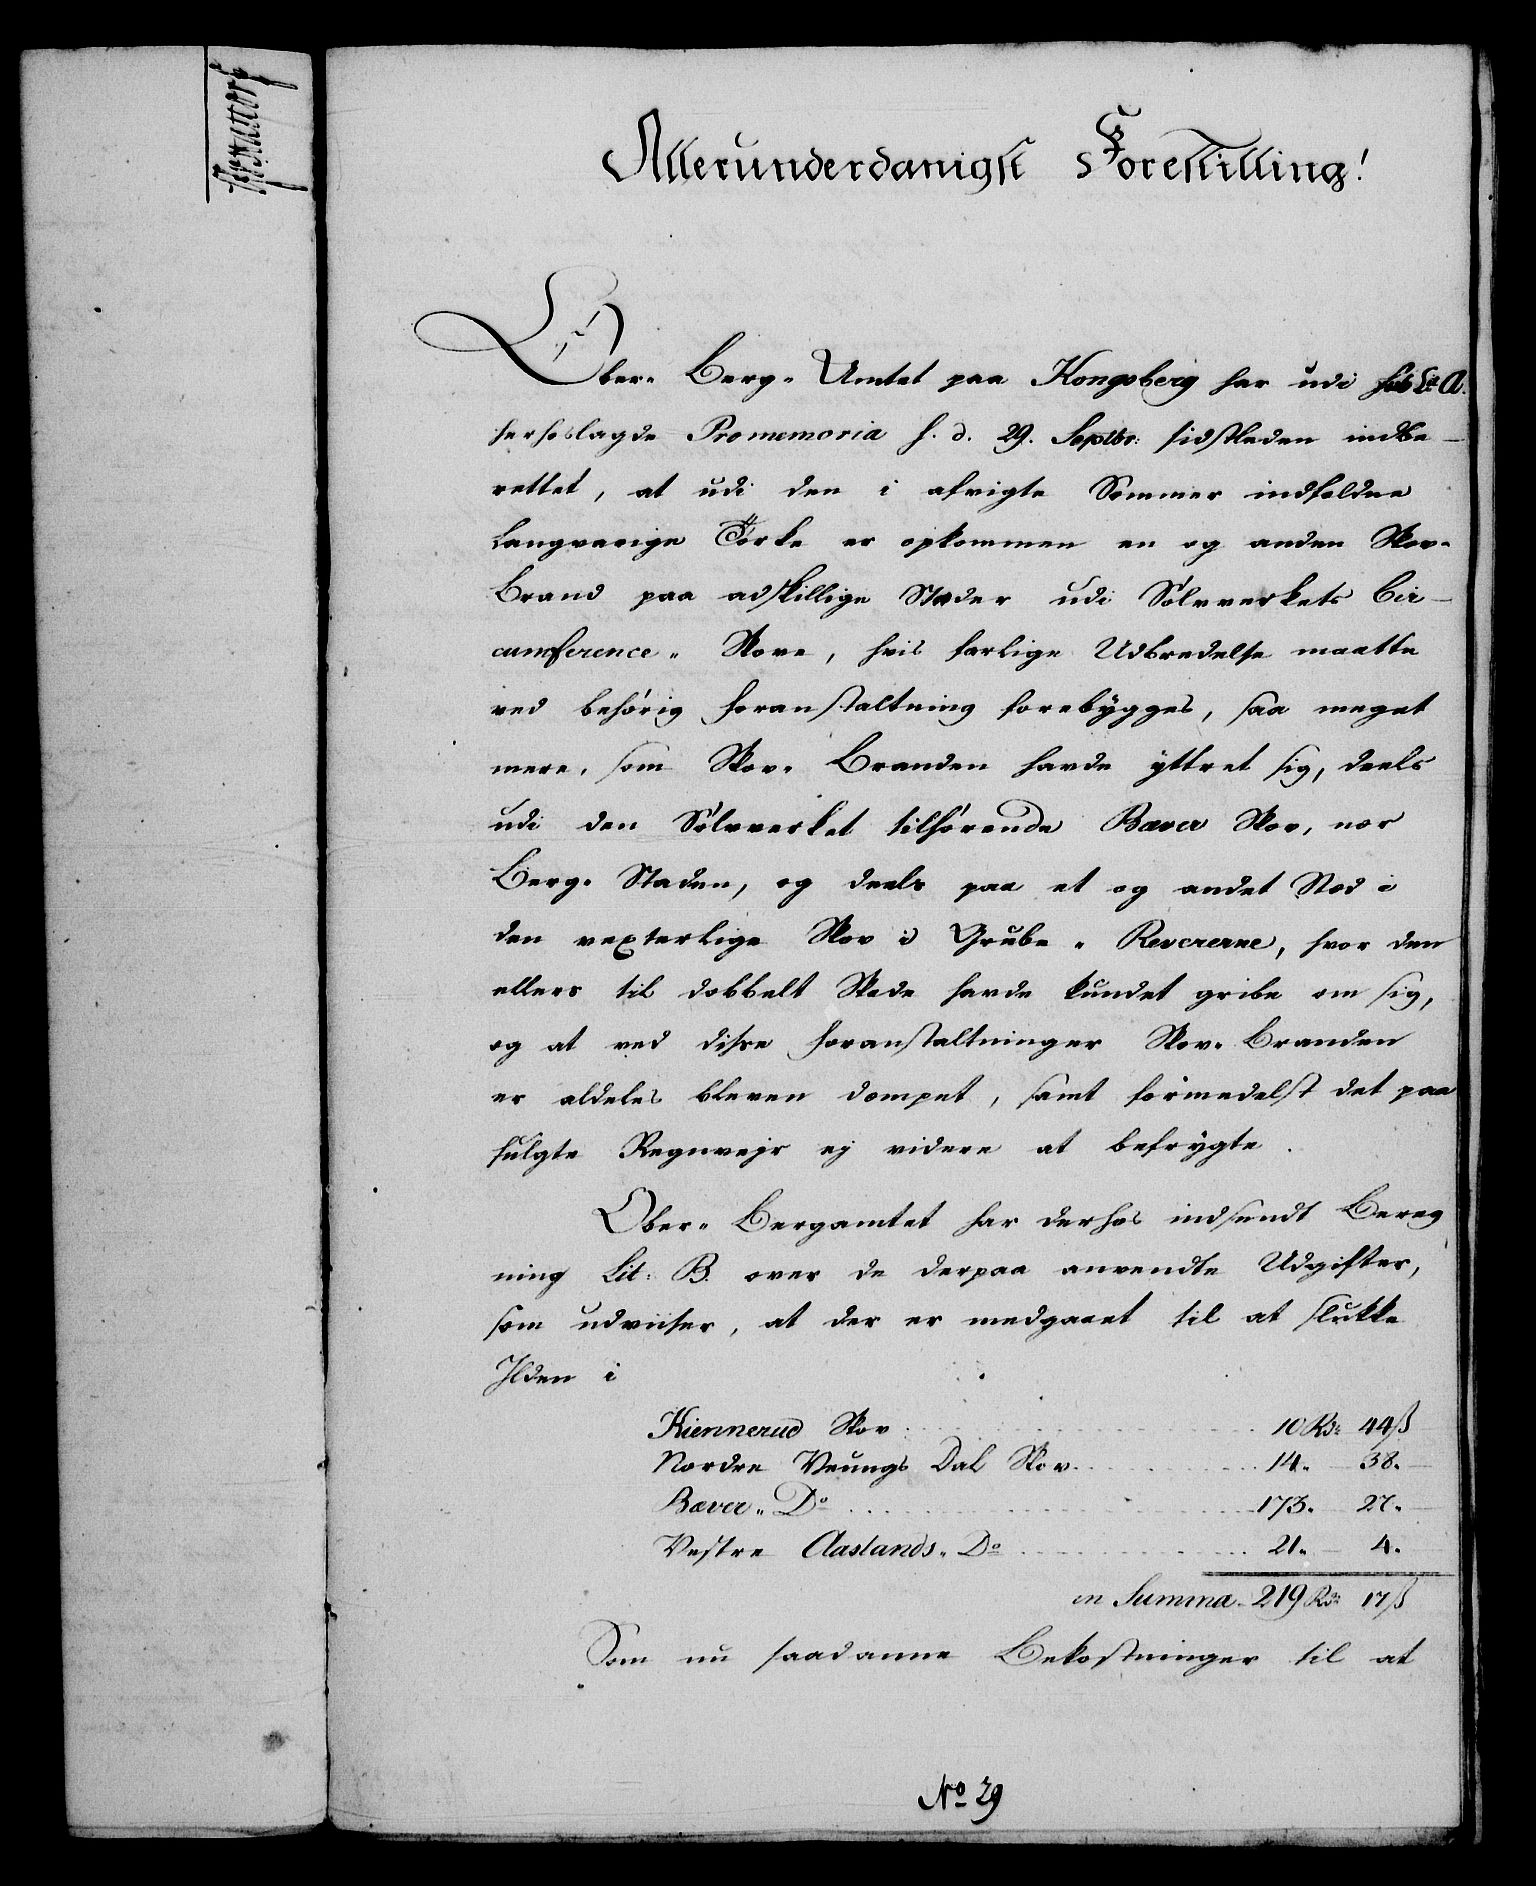 Allerunderdanigst Forestilling!
Ober- Berg- Amtet paa Kongsberg har udi sub Lit A.
herhoslagde Promemoria f. d. 29. Septbr: sidstleden indbe-
rettet, at udi den i afvigte Sommer indfaldne
langvarige Törke er opkommen en og anden Skov-
brand paa adskillige Stæder udi Sölvverkets Cir-
cumference- Skove, hvis farlige Udbredelse maatte
ved behörig Foranstaltning forebÿgges, saa meget
mere, som Skov- Branden havde ÿttret sig, deels
udi den Sölvverket tilhörende Bæver Skov, nær
Berg- Staden, og deels paa et og andet Stæd i
den vexterlige Skov i Grube- Revererne, hvor den
ellers til dobbelt Skade havde kundet gribe om sig,
og at ved disse Foranstaltninger Skov- Branden
er aldeles bleven dæmpet, samt formedelst det paa
fulgte Regnvejr ej videre at befrÿgte.
Ober- Bergamtet har derhos indsendt Bereg
ning Lit: B. over de derpaa anvendte Udgifter,
som udviiser, at der er medgaaet til at slukke
Ilden i
Kiennerud Skov 10 Rd: 44 ß
Nordre Veungs Dal Skov 14 - 38 -
Bæver- Do 173 - 27 -
Vestre Aaslands- Do 21 - 4 -
in Summa 219 Rd: 17 ß
Som nu saadanne Bekostninger til at
No 29